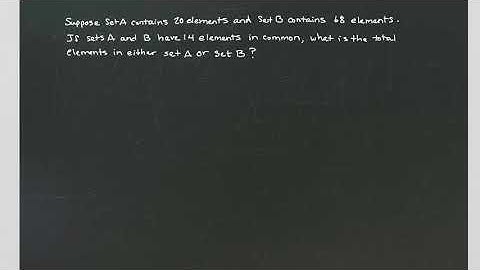 Suppose Set A contains 20 elements and Set B contains 68 elements.
If sets A and B have 14 elements in common, what is the total
elements in either set A or Set B?